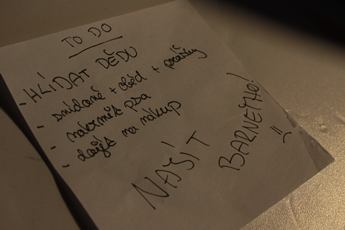 TO DO
- HLÍDAT DĚDU
- snídaně + oběd + prášky
- nakrmit psa
- dojít na nákup
NAJÍT
BARNEYHO!